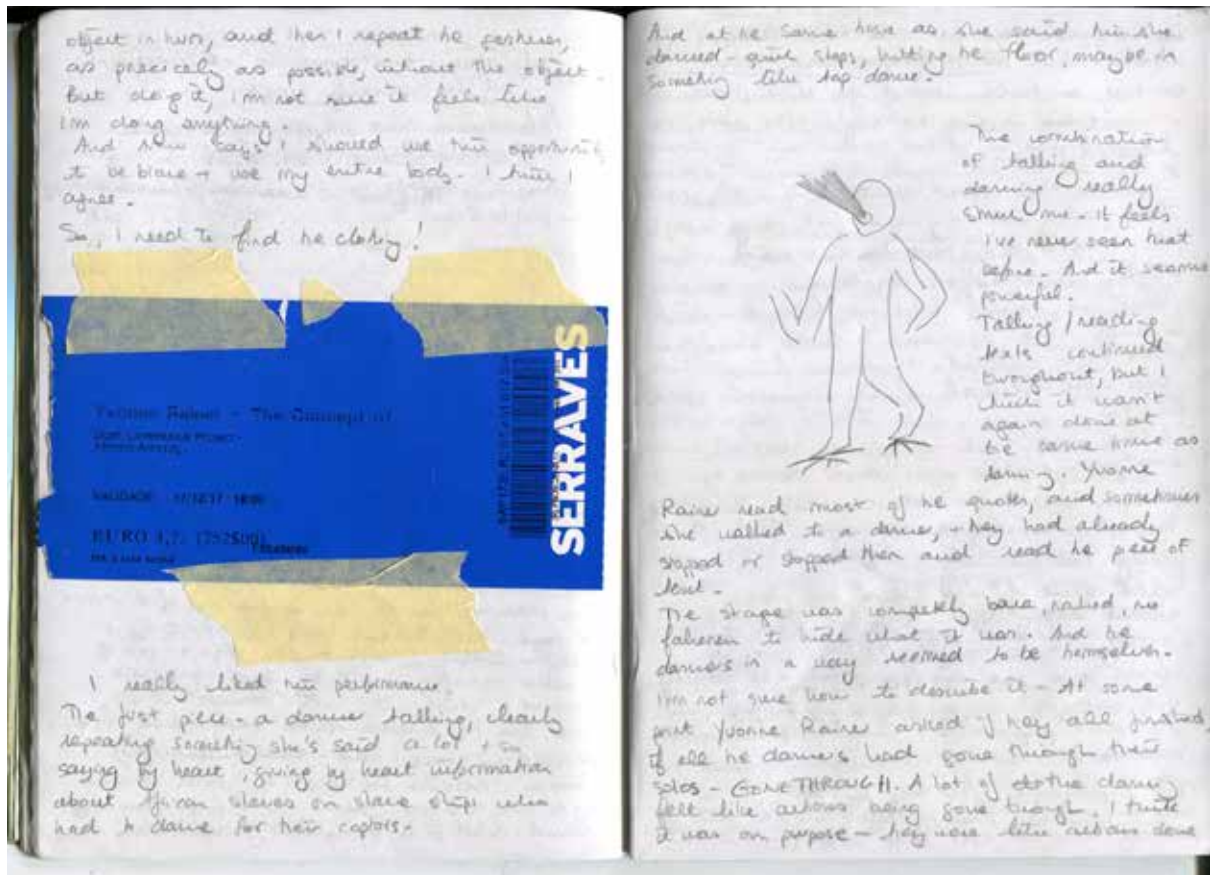 object in turn, and then I repeat the gestures,
as precisely as possible, without the object.
But doing it, I'm not sure it feels like
I'm doing anything.
And says I should use this opportunity
to be brave + use my entire body. I think I
agree.
So, I need to find the clothing!
Yvonne Rainer - The Concept of
SERRALVES
I really liked this performance.
The first piece - a dancer talking, clearly
repeating something she's said a lot +
saying by heart, giving by heart information
about African slaves on slave ships who
had to dance for their captors.
And at the same time as she said this she
danced - quick steps, hitting the floor, maybe in
something like tap dance.
The combination
of talking and
dancing really
struck me. It feels
I've never seen that
before. And it seems
powerful.
Talking / reading
texts continued
throughout, but I
think it wasn't
again done at
the same time as
dancing. Yvonne
Rainer read most of the quotes, and sometimes
she walked to a dancer, + they had already
stopped or stopped then and read the piece of
text.
The stage was completely bare, naked, no
to hide what it was. And the
dancers in a way seemed to be themselves.
I'm not sure how to describe it - At some
point Yvonne Rainer asked if they all finished,
if all the dancers had gone through their
solos - GONE THROUGH. A lot of the dancing
felt like actions being gone through. I think
it was on purpose - they were like actions done